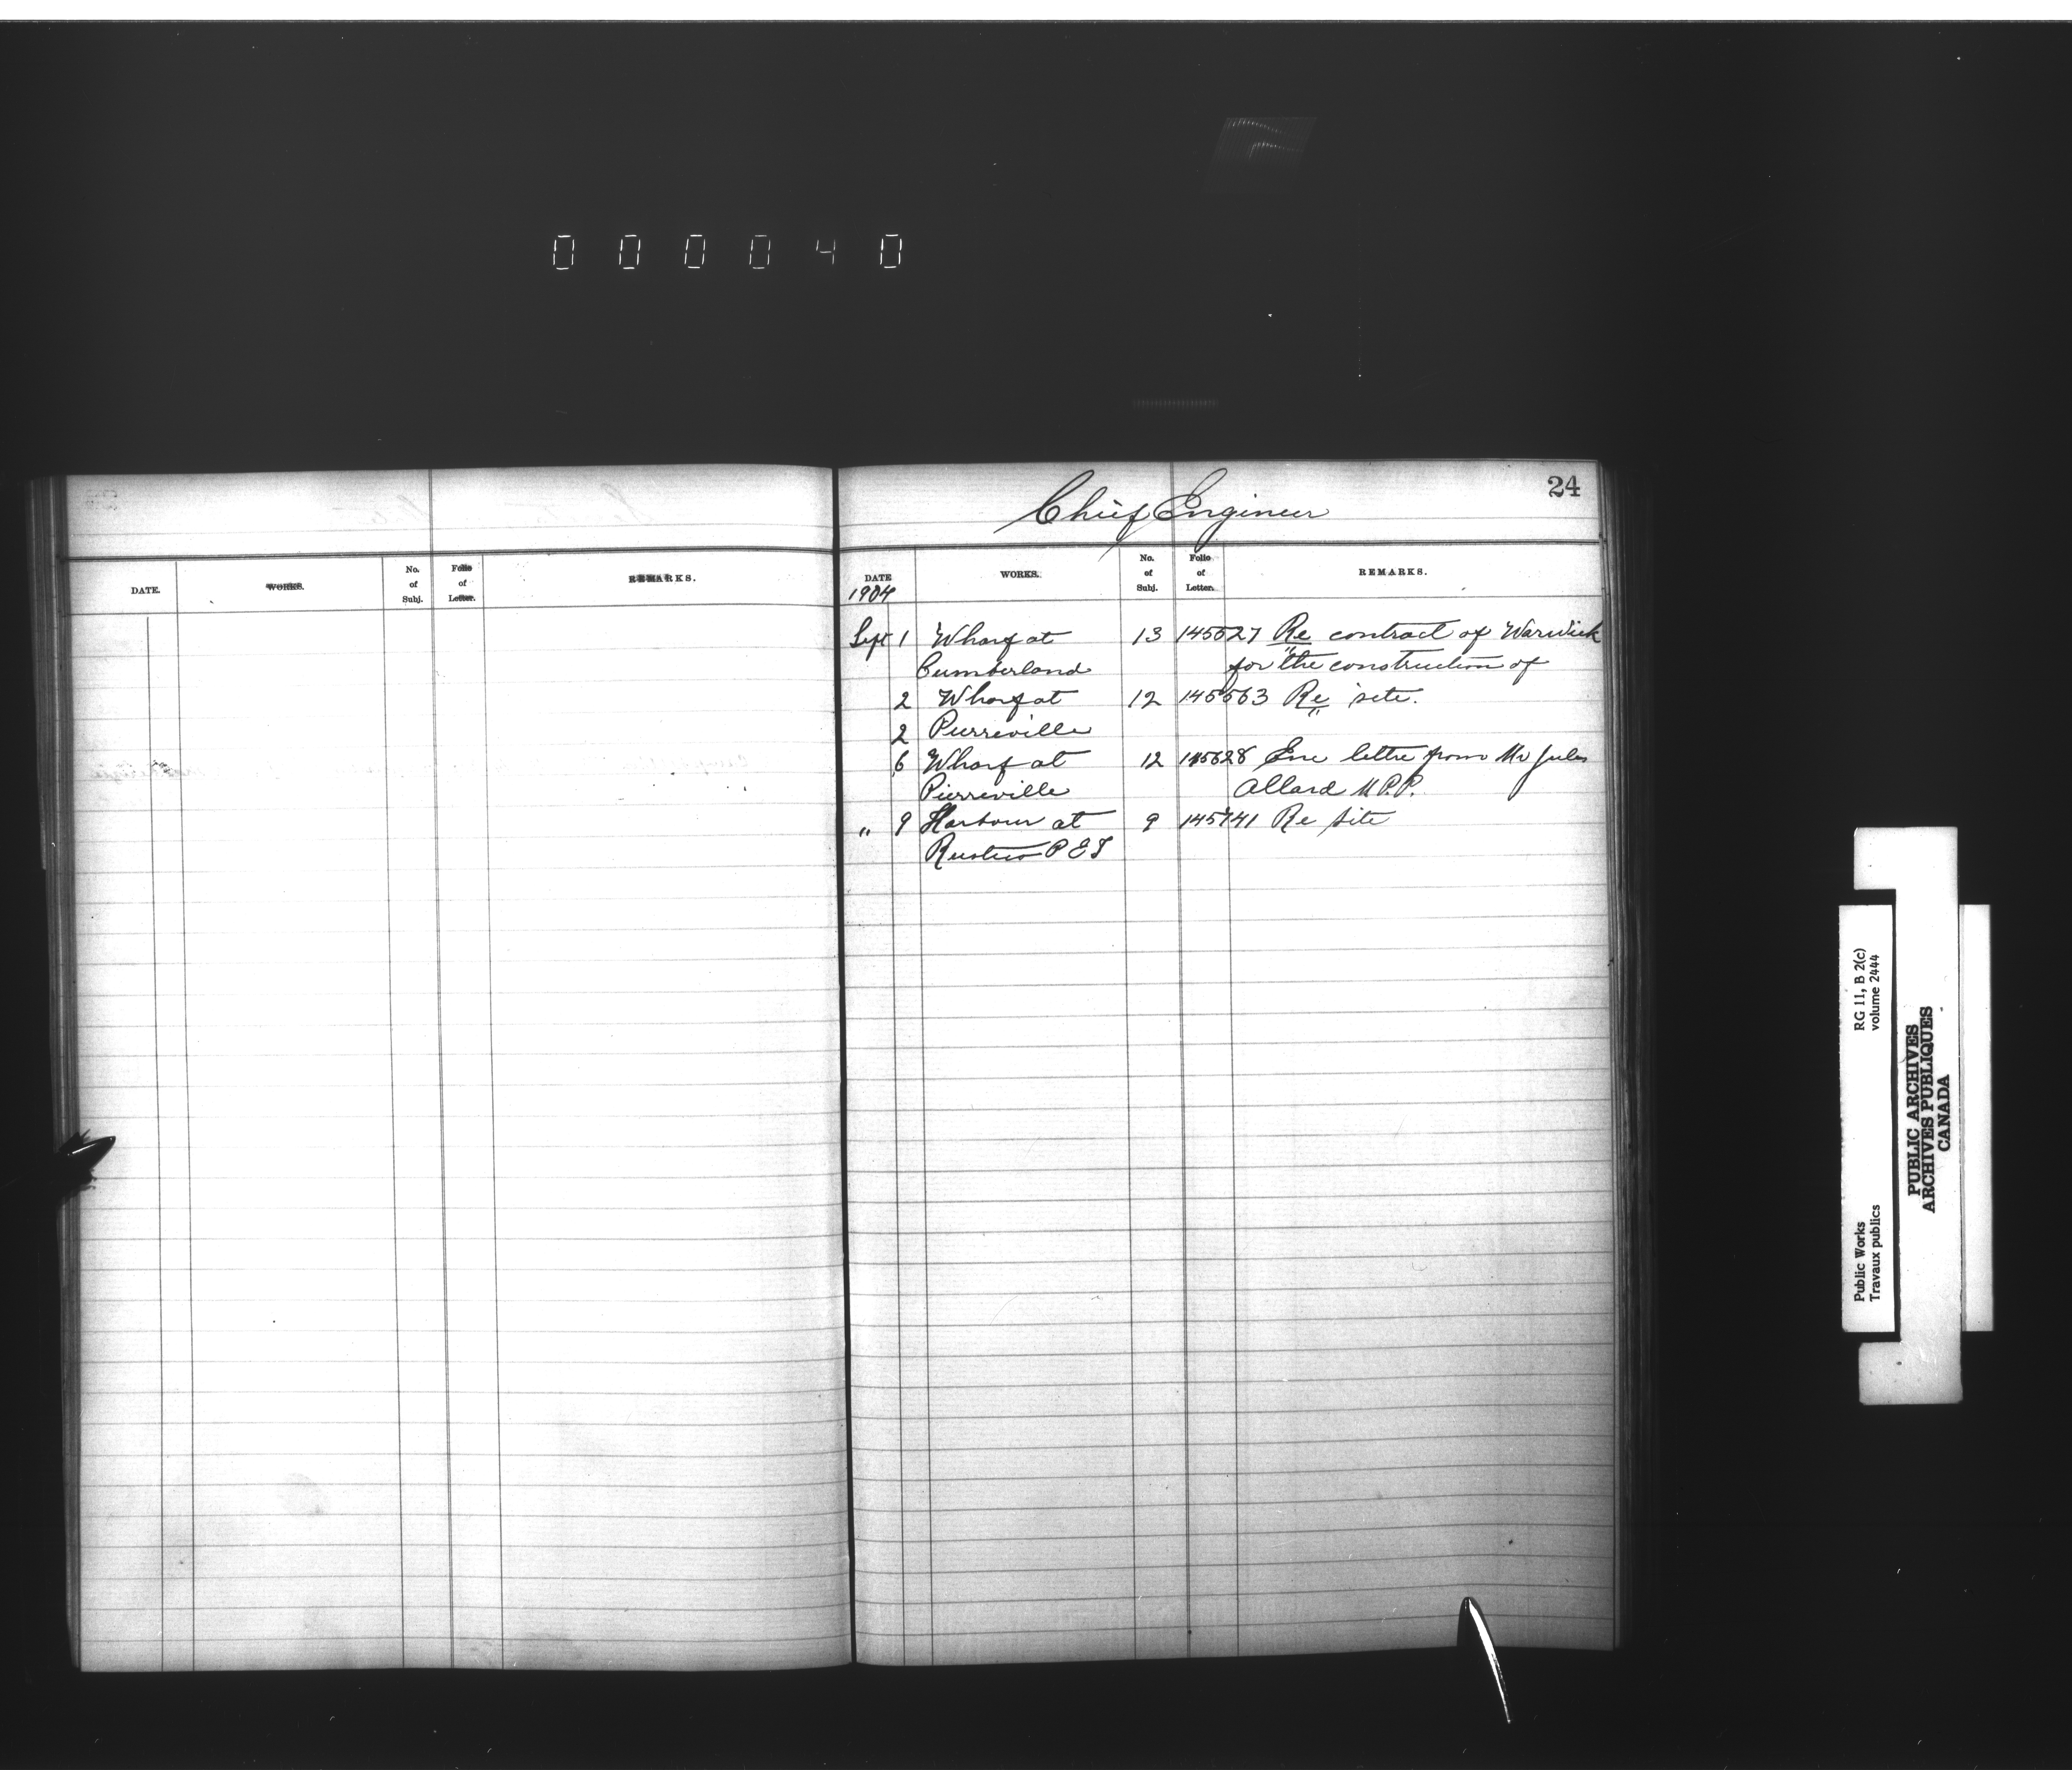 000040
24
Chief Engineer
DATE. WORKS. No. of Subj. Folio of Letter. REMARKS.
DATE WORKS. No. of Subj. Folio of Letter. REMARKS.
1904
Sept 1 Wharf at 13 145527 Re contract of Warwick
Cumberland for the construction of
2 Wharf at 12 145563 Re site.
2 Pierreville
6 Wharf at 12 145628 Enc lettre from Mr Jules
Pierreville Allard M.P.P.
" 9 Harbour at 9 145741 Re site
Rustico P E I
RG 11, B 2(c)
volume 2444
Public Works
Travaux publics
PUBLIC ARCHIVES
ARCHIVES PUBLIQUES
CANADA